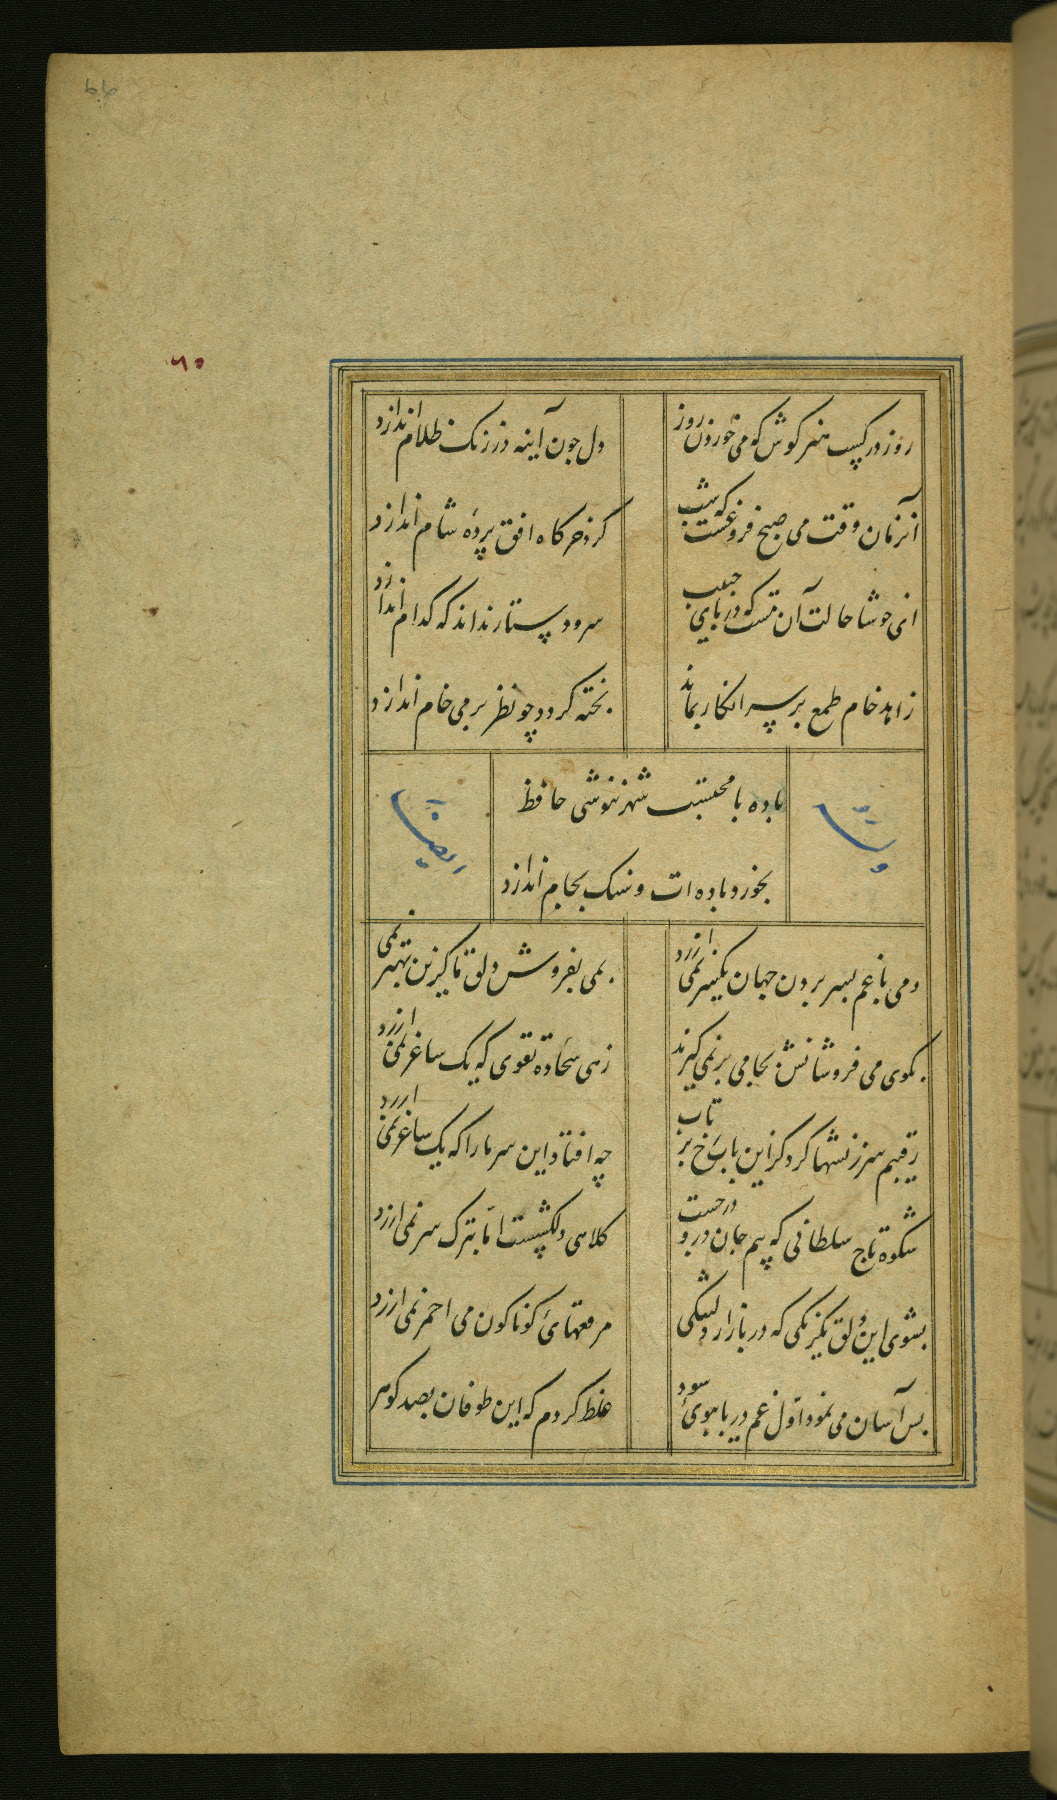 ۶۵
روز در کسب هنر کوش که می خوردن روز
دل چون آینه در زنگ ظلام اندازد
آنزمان وقت می صبح فروغست که شب
گرد خرگاه افق پرده شام اندازد
ای خوشا حالت آن مست که در پای حبیب
سر و دستار نداند که کدام اندازد
زاهد خام طمع بر سر انکار بماند
پخته گردد چو نظر بر می خام اندازد
باده با محتسب شهر ننوشی حافظ
بخورد باده ات و سنک بجام اندازد
وله
ایضا
دمی با غم بسر بردن جهان یکسر نمی ارزد
بمی بفروش دلق ما کزین بهتر نمی
بکوی می فروشانش بجامی بر نمی گیرند
زهی سجاده تقوی که یک ساغر نمی ارزد
رقیبم سرزنشها کرد کزین باب رخ بر تاب
چه افتاد این سر ما را که یک ساغر نمی ارزد
شکوه تاج سلطانی که بیم جان درو درجست
کلاهی دلکشست اما بترک سر نمی ارزد
بشوی این دلق یکرنگی که در بازار
مرقعهای کوناکون می احمر نمی ارزد
بس آسان می نمود اول غم دریا ببوی سود
غلط کردم که این طوفان بصد کوهر